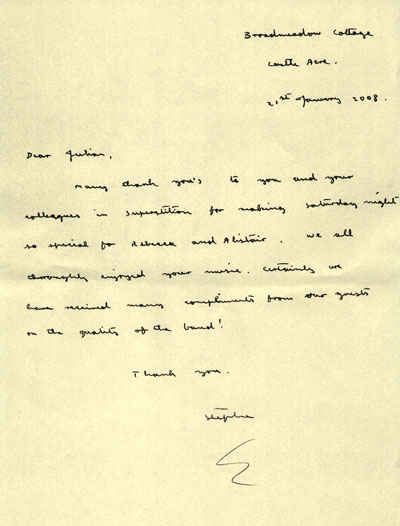 Broadmeadow Cottage
Castle Acre.
21st January 2008.
Dear Julian,
Many thank you's to you and your
colleagues in Superstition for making Saturday night
so special for Rebecca and Alistair. We all
thoroughly enjoyed your music. Certainly we
have received many compliments from our guests
on the quality of the band!
Thank you.